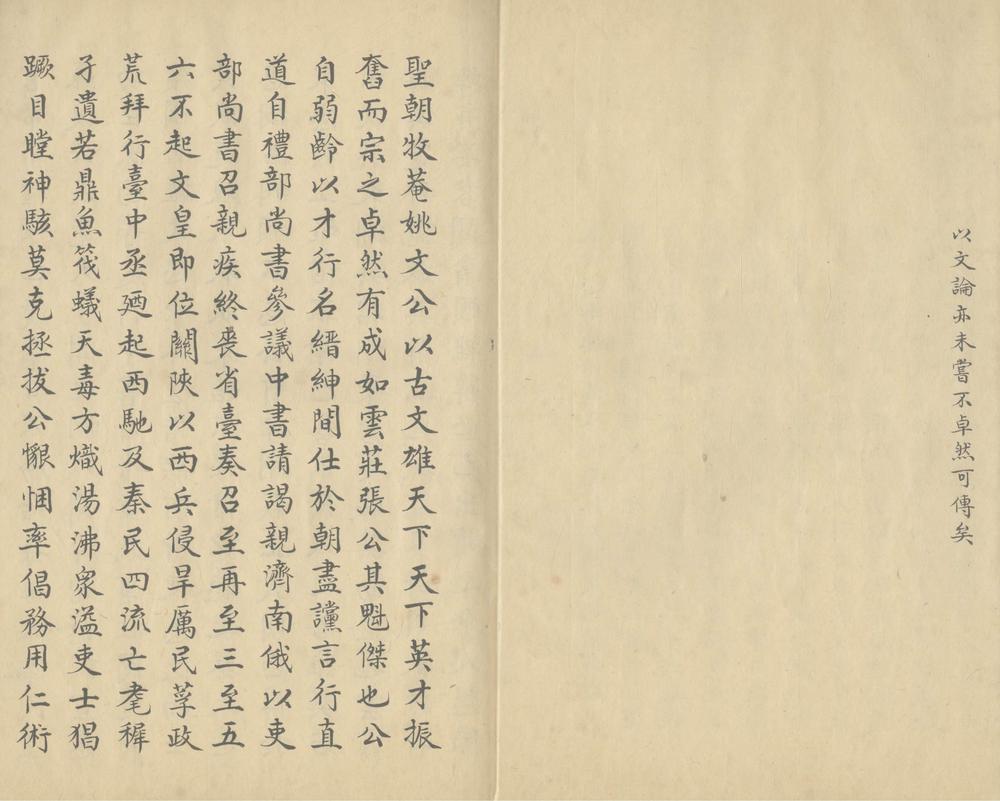 以文論亦未嘗不卓然可傳矣
聖朝牧菴姚文公以古文雄天下天下英才振
奮而宗之卓然有成如雲莊張公其魁傑也公
自弱齡以才行名縉紳間仕於朝盡讜言行直
道自禮部尚書參議中書請謁親濟南俄以吏
部尚書召親疾終喪省臺奏召至再至三至五
六不起文皇即位關陝以西兵侵旱厲民莩政
荒拜行臺中丞廼起西馳及秦民四流亡耄稺
孑遺若鼎魚筏蟻天毒方熾湯沸衆溢吏士猖
蹶目瞠神駭莫克拯拔公懇悃率倡務用仁術